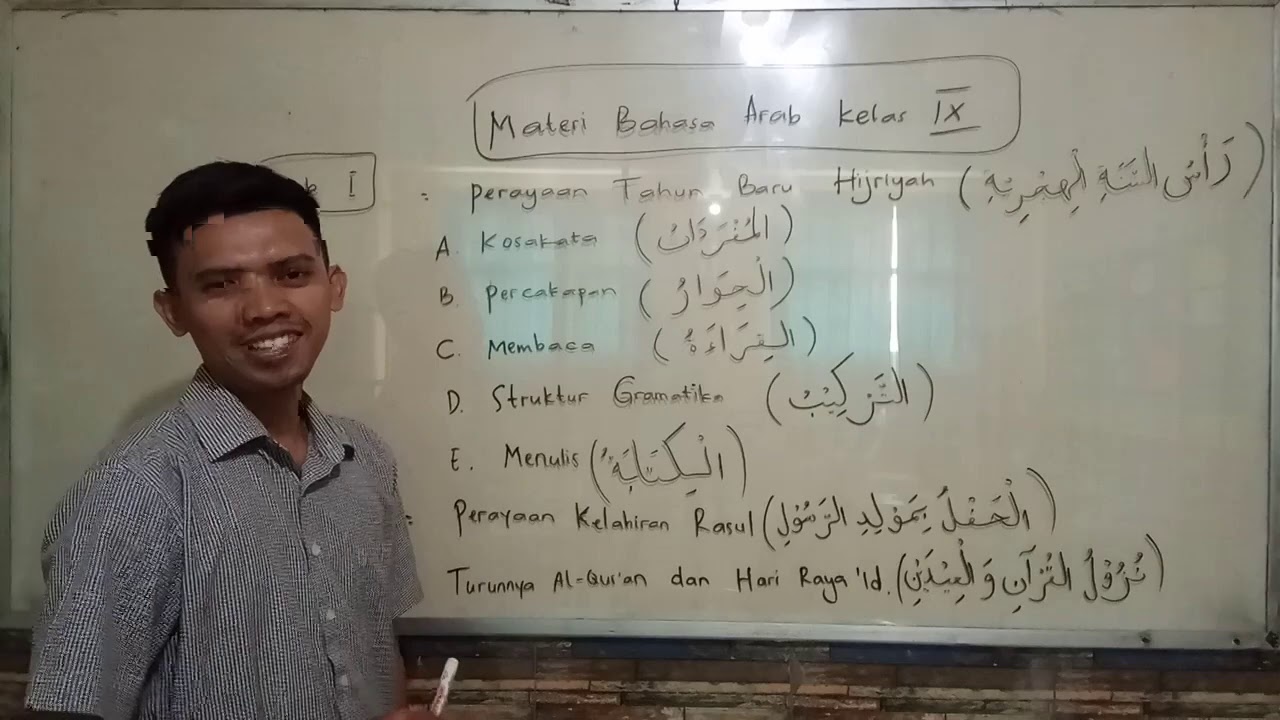 Materi Bahasa Arab kelas IX
I
: perayaan Tahun Baru Hijriyah (رَأْسُ السَّنَةِ الْهِجْرِيَّةِ)
A. Kosakata (المُفْرَدَاتُ)
B. Percakapan (الْحِوَارُ)
C. Membaca (القِرَاءَةُ)
D. Struktur Gramatika (التَّرْكِيْبُ)
E. Menulis (الْكِتَابَةُ)
: Perayaan Kelahiran Rasul (الْحَفْلُ بِمَوْلِدِ الرَّسُوْلِ)
Turunnya Al-Qur'an dan Hari Raya 'Id. (نُزُوْلُ القُرْآنِ وَ الْعِيْدَيْنِ)